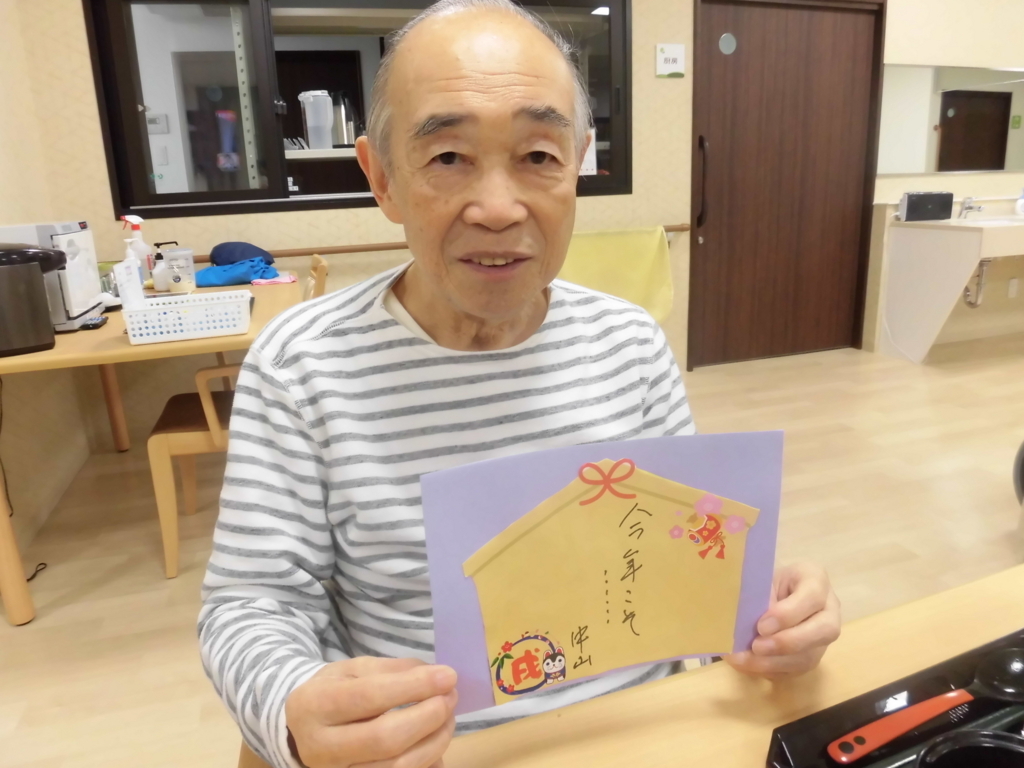 今年こそ
……
中山
戌